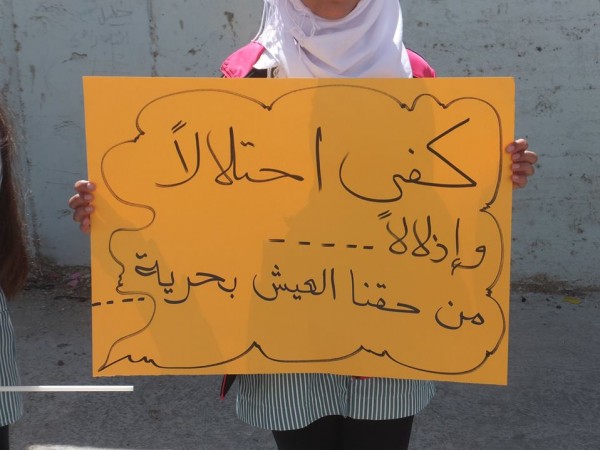 كفى احتلالاً
وإذلالاً -----
من حقنا العيش بحرية ---